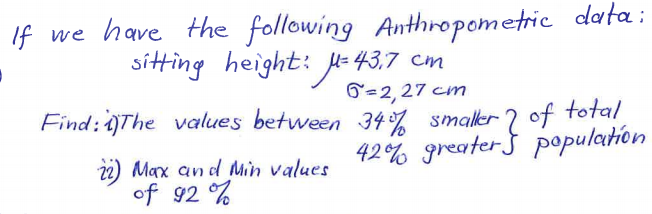 If we have the following Anthropometric data:
sitting height: μ=43,7 cm
σ=2,27 cm
Find: i) The values between 34% smaller } of total
42% greater } population
ii) Max and Min values
of 92 %